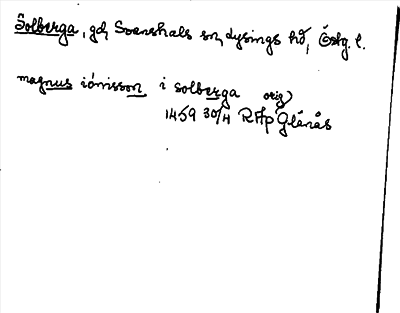 Solberga, gd, Svanshals sn, Lysings hd, Östg. l.
magnus iönisson i solberga orig
1459 30/4 RAp Glänås